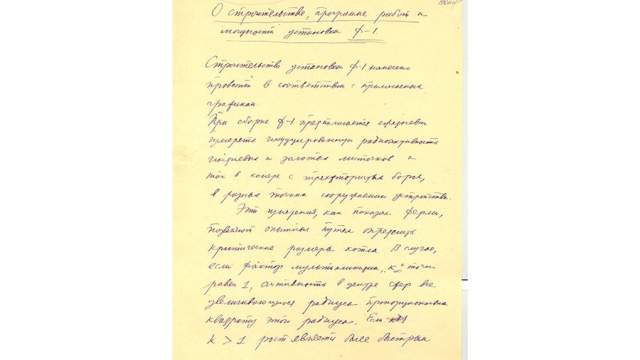 О строительстве, программе работ и
мощности установки Ф-1
Строительство установки Ф-1 намечено
провести в соответствии с прилагаемым
графиком.
При сборке Ф-1 предполагается ежедневно
измерять индуцированную радиоактивность
индиевых и золотых листочков и
ток в камере с трехфтористым бором,
в разных точках сооружаемого устройства.
Эти измерения, как показал Ферми,
позволят опытным путем определить
критические размеры котла. В случае,
если фактор мультипликации „к" точно
равен 1, активность в центре сфер все
увеличивающегося радиуса пропорциональна
квадрату этого радиуса. Если
k > 1 рост является более быстрым